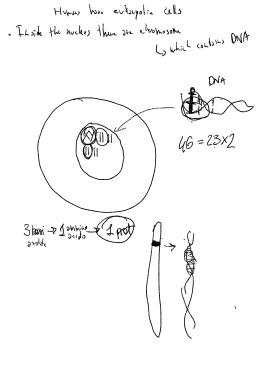 Humans have eukaryotic cells
• Inside the nucleus there are chromosome
↳ which contains DNA
DNA
46 = 23 x 2
3 → 1 → 1 prot